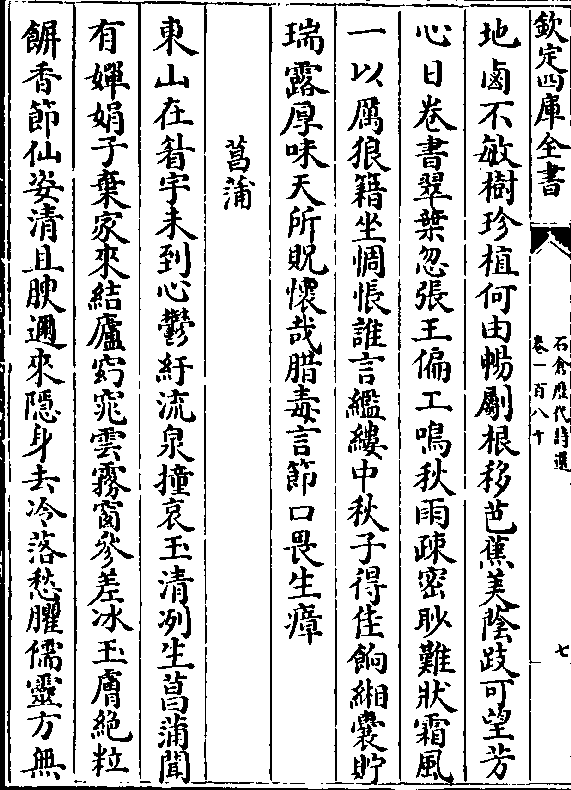 欽定四庫全書
石倉歷代詩選
卷一百八十
七
地鹵不敏樹珍植何由暢劚根移芭蕉美陰跂可望芳
心日卷書翠葉忽張王偏工鳴秋雨疎密眇難狀霜風
一以厲狼籍坐惆悵誰言繿縷中秋子得佳餉緗囊貯
瑞露厚味天所貺懷哉腊毒言節口畏生瘴
菖蒲
東山在眘宇未到心鬱紆流泉撞哀玉清冽生菖蒲聞
有嬋娟子棄家來結廬窈窕雲霧窗參差冰玉膚絶粒
餅香節仙姿清且腴邇來隱身去冷落愁臞儒靈方無